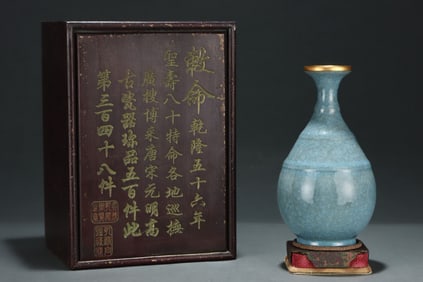 敕命乾隆五十六年
聖壽八十特命各地巡撫
廣搜博采唐宋元明高
古瓷器珍品五百件此
第三百四十八件